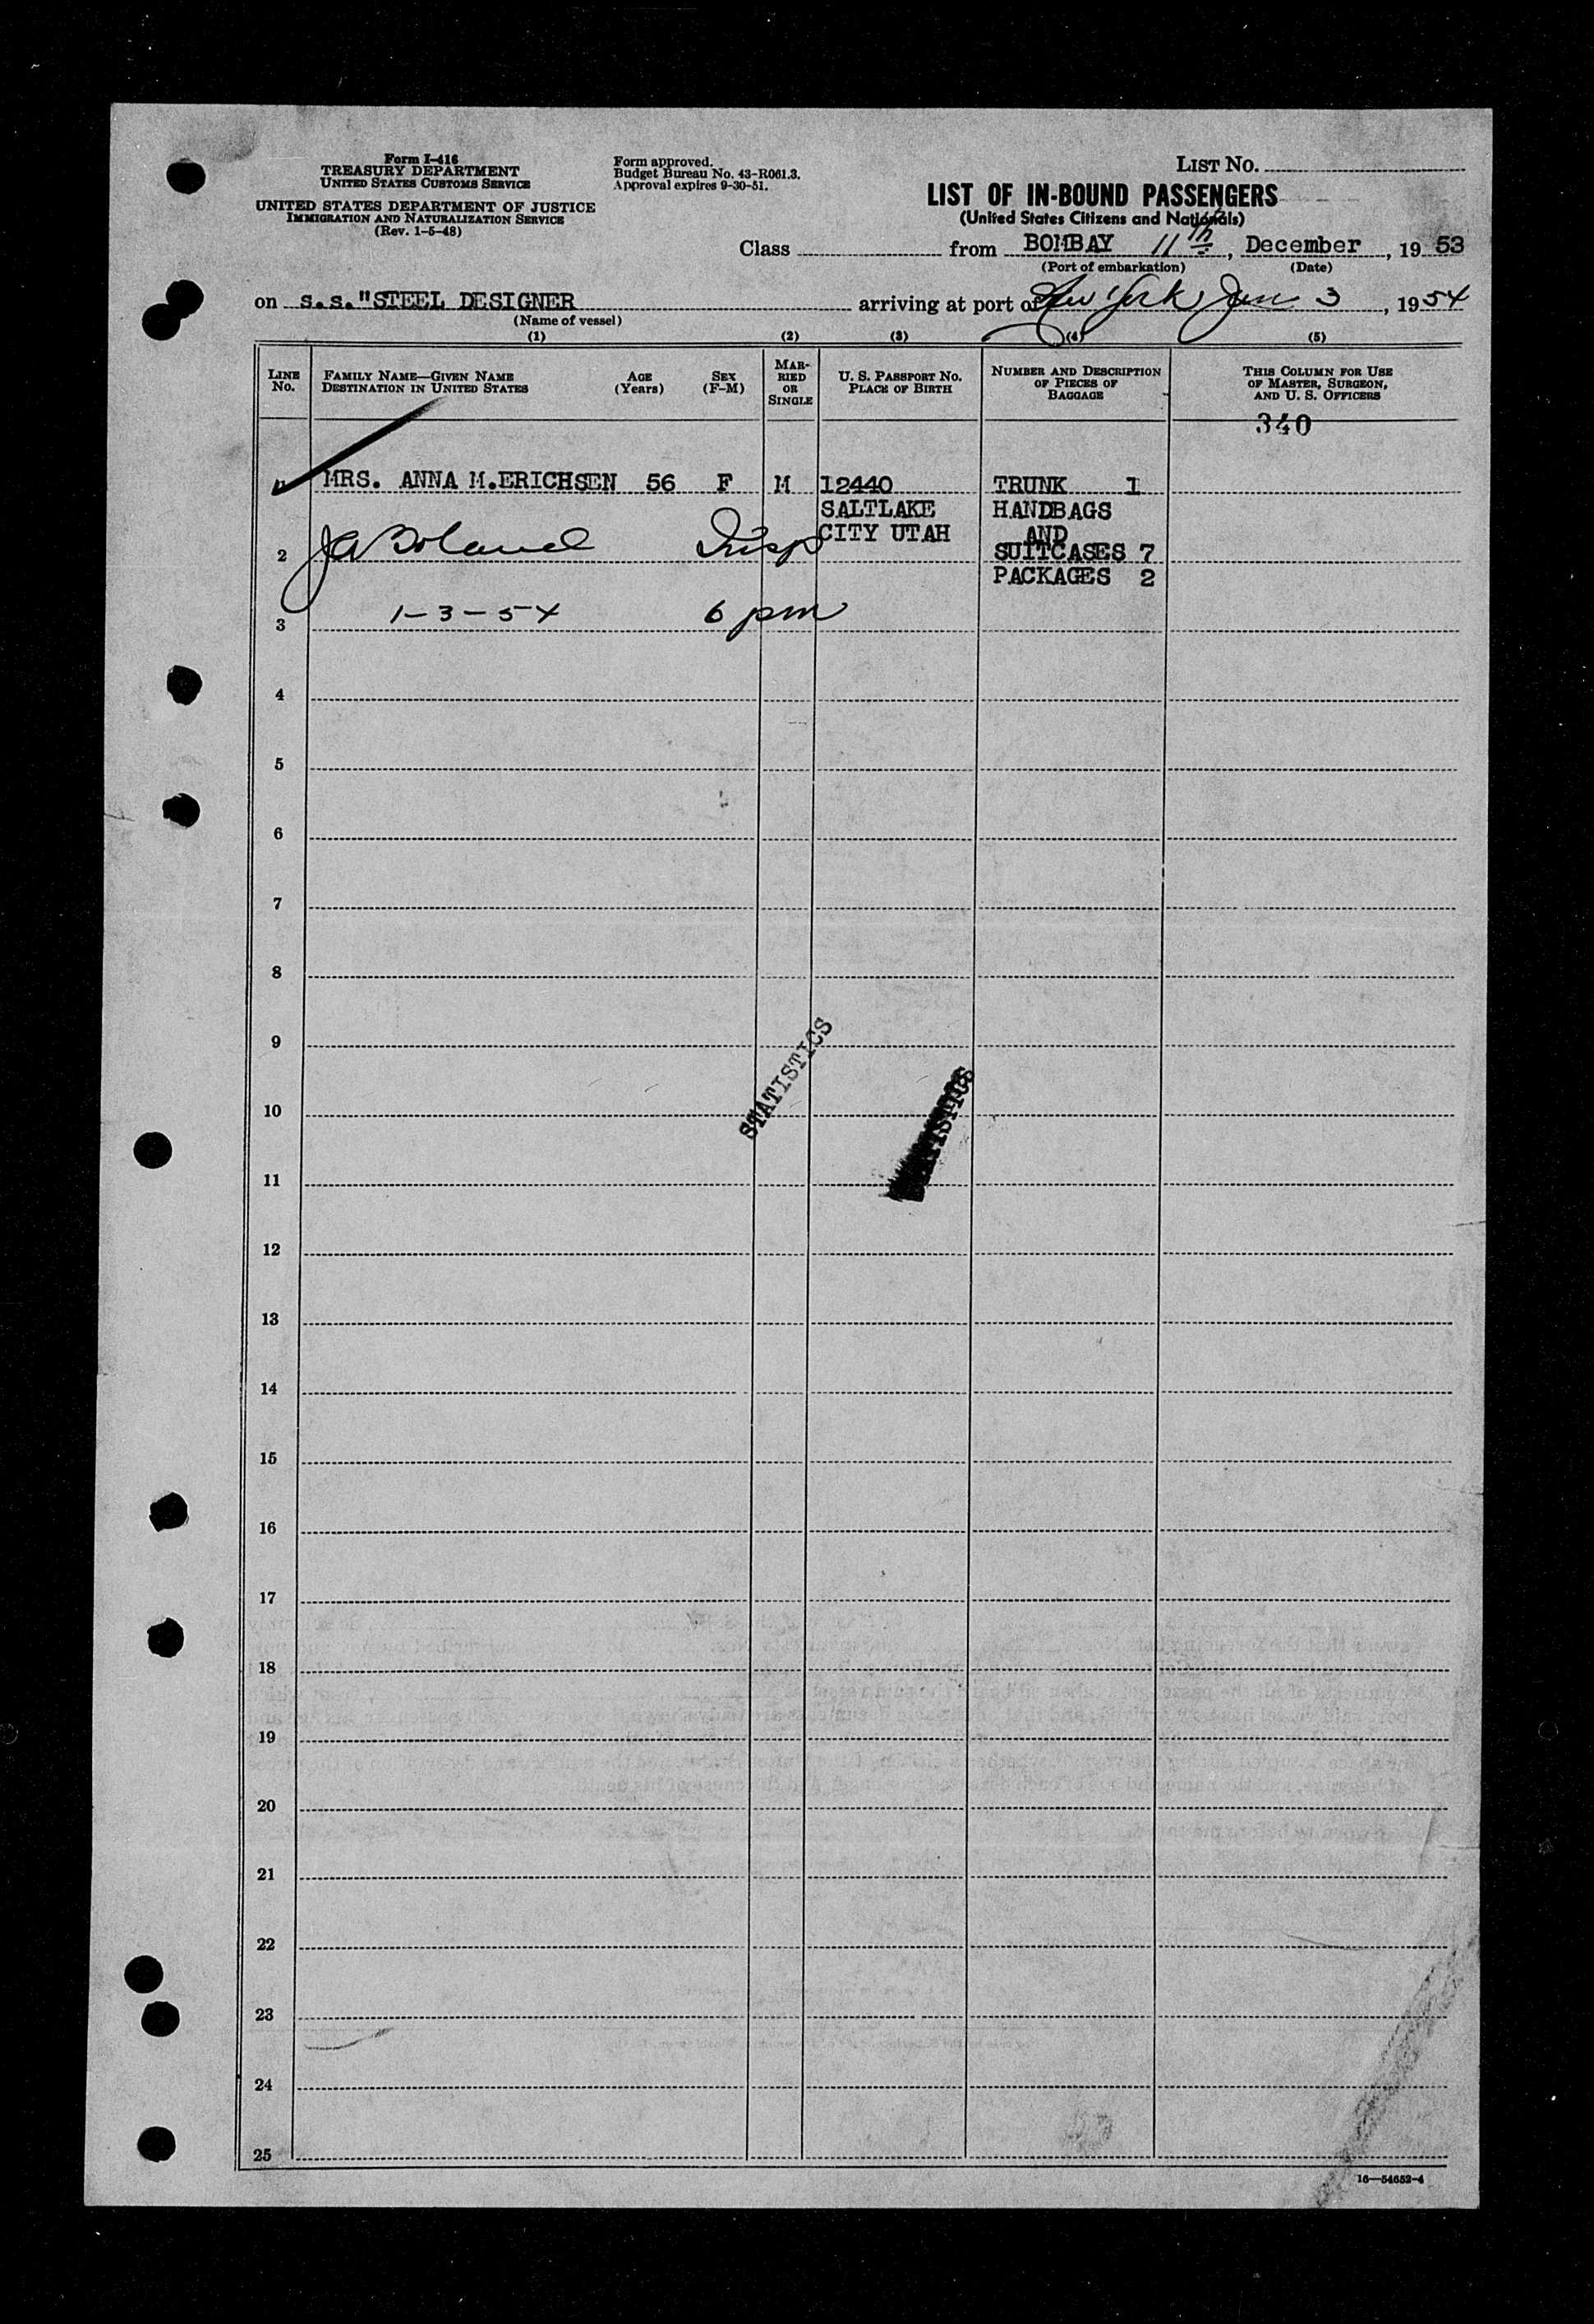 Form I-416
TREASURY DEPARTMENT
UNITED STATES CUSTOMS SERVICE
UNITED STATES DEPARTMENT OF JUSTICE
IMMIGRATION AND NATURALIZATION SERVICE
(Rev. 1-5-48)
Form approved.
Budget Bureau No. 43-R061.3.
Approval expires 9-30-51.
LIST NO.
LIST OF IN-BOUND PASSENGERS
(United States Citizens and Nationals)
Class from BOMBAY 11th, December, 1953
(Port of embarkation) (Date)
on s.s."STEEL DESIGNER arriving at port of New York Jan 3, 1954
(Name of vessel)
(1) (2) (3) (4) (5)
LINE NO. FAMILY NAME—GIVEN NAME DESTINATION IN UNITED STATES AGE (Years) SEX (F-M) MARRIED OR SINGLE U. S. PASSPORT NO. PLACE OF BIRTH NUMBER AND DESCRIPTION OF PIECES OF BAGGAGE THIS COLUMN FOR USE OF MASTER, SURGEON, AND U. S. OFFICERS
340
MRS. ANNA M.ERICHSEN 56 F M 12440 TRUNK 1
SALTLAKE HANDBAGS
CITY UTAH AND
2 JA Boland Insp SUITCASES 7
PACKAGES 2
1-3-54 6 pm
3
4
5
6
7
8
9
STATISTICS
10
11
12
13
14
15
16
17
18
19
20
21
22
23
24
25
16—54652-4